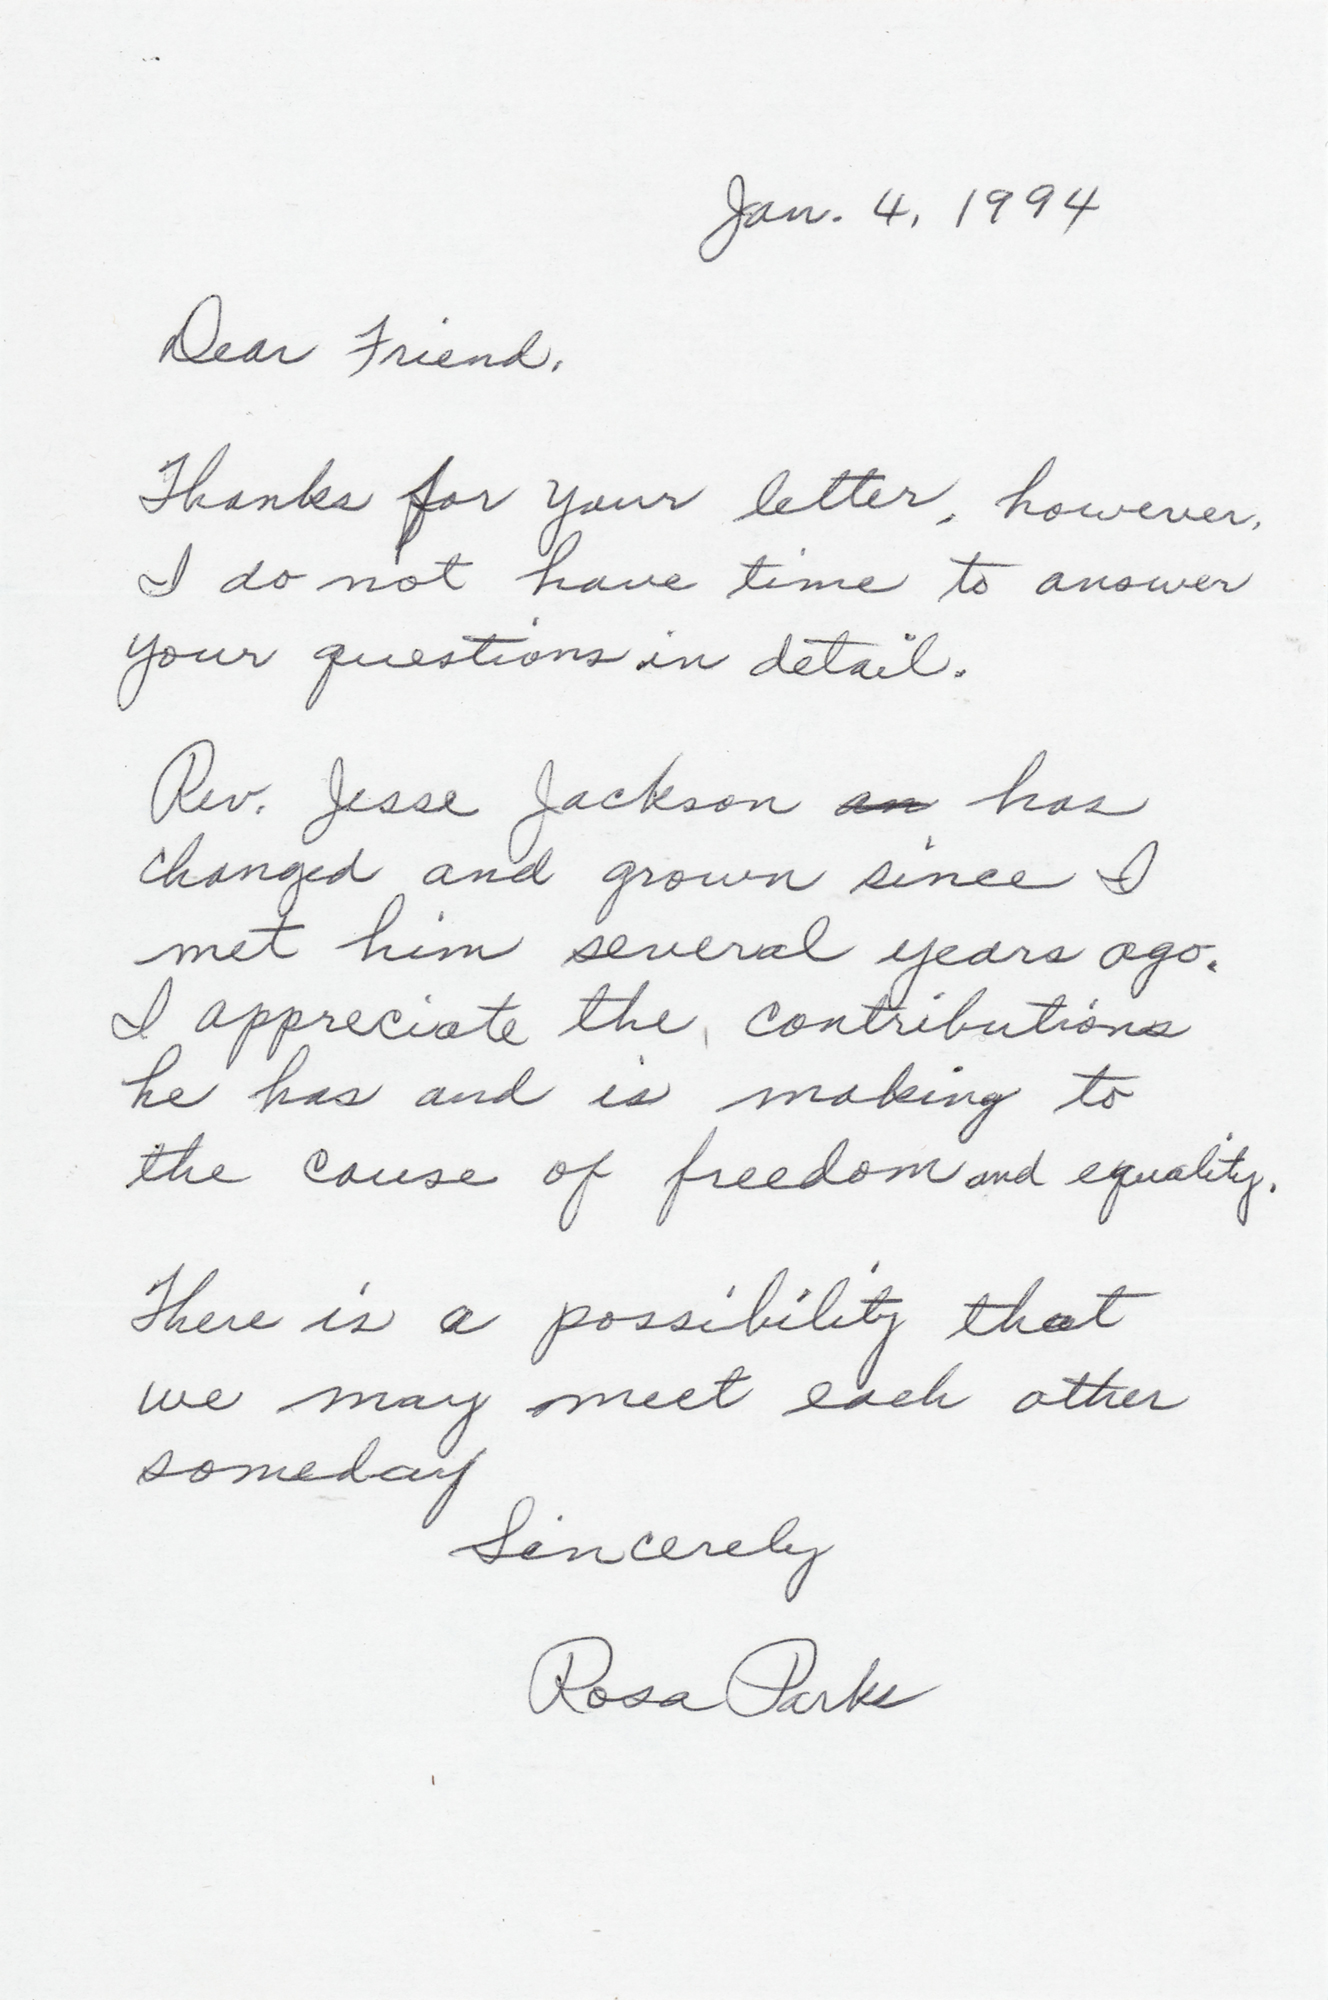 Jan. 4, 1994
Dear Friend,
Thanks for your letter, however,
I do not have time to answer
your questions in detail.
Rev. Jesse Jackson an has
changed and grown since I
met him several years ago.
I appreciate the contributions
he has and is making to
the cause of freedom and equality.
There is a possibility that
we may meet each other
someday
Sincerely
Rosa Parks